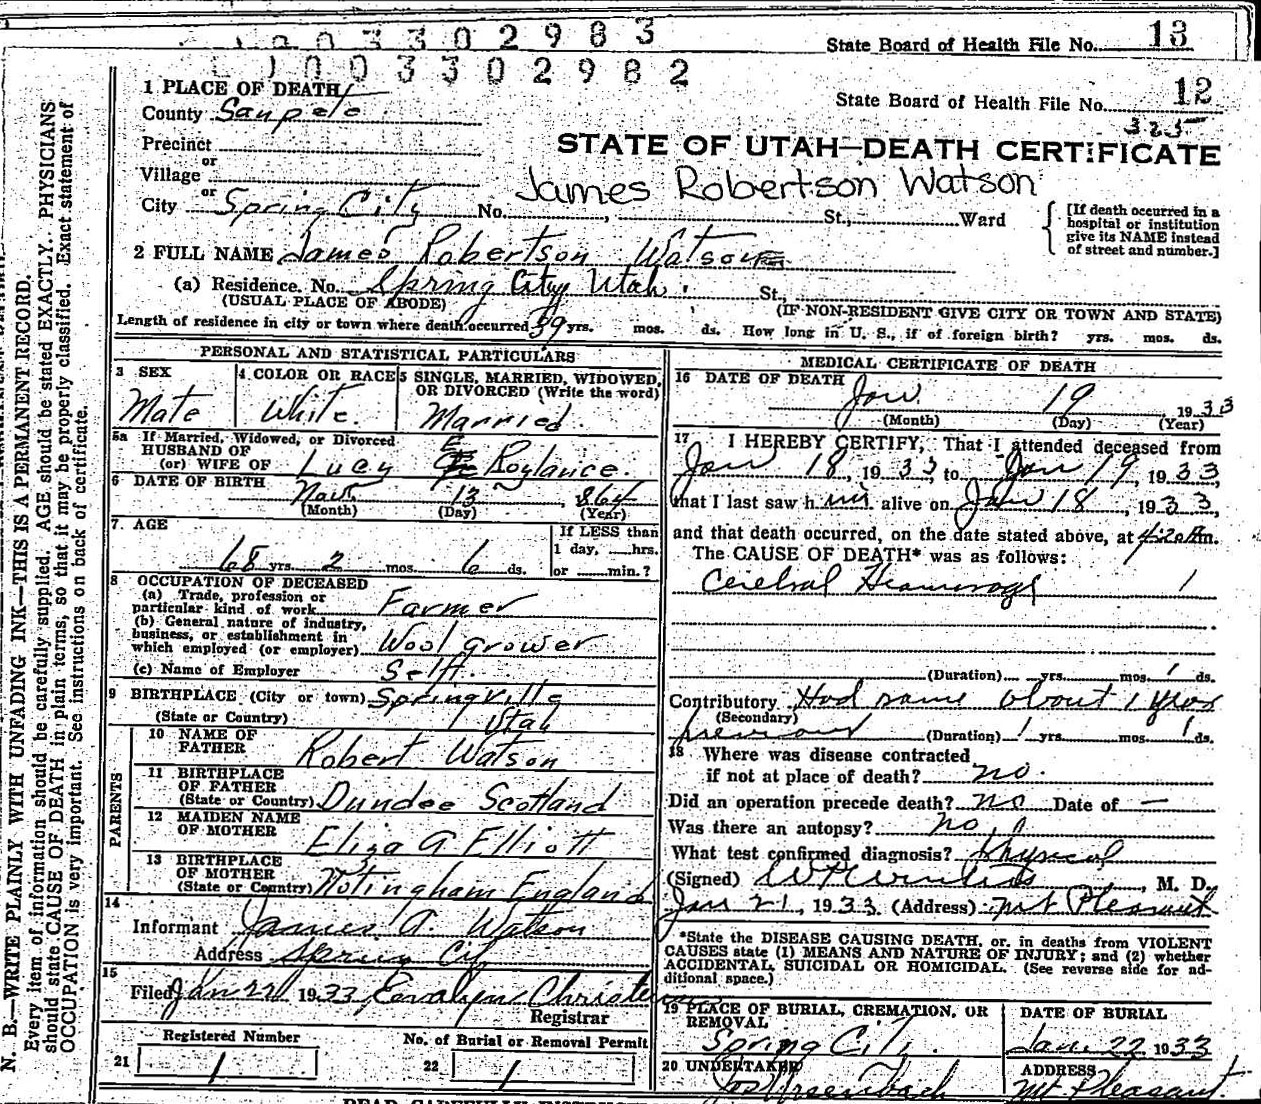 1003302983
State Board of Health File No. 13
1003302982
State Board of Health File No. 12
325
1 PLACE OF DEATH
County Sanpete
STATE OF UTAH—DEATH CERTIFICATE
Precinct
or
Village
James Robertson Watson
or
City Spring City No. , St., Ward
[If death occurred in a
hospital or institution
give its NAME instead
of street and number.]
2 FULL NAME James Robertson Watson
(a) Residence. No. Spring City Utah. St.,
(USUAL PLACE OF ABODE) (IF NON-RESIDENT GIVE CITY OR TOWN AND STATE)
Length of residence in city or town where death occurred 39 yrs. mos. ds. How long in U. S., if of foreign birth? yrs. mos. ds.
PERSONAL AND STATISTICAL PARTICULARS
3 SEX
Male
4 COLOR OR RACE
White.
5 SINGLE, MARRIED, WIDOWED,
OR DIVORCED (Write the word)
Married.
5a If Married, Widowed, or Divorced
HUSBAND OF
(or) WIFE OF Lucy E Roylance.
6 DATE OF BIRTH Nov. 13 1864
(Month) (Day) (Year)
7. AGE
68 yrs. 2 mos. 6 ds.
If LESS than
1 day, hrs.
or min.?
8 OCCUPATION OF DECEASED
(a) Trade, profession or
particular kind of work Farmer
(b) General nature of industry,
business, or establishment in
which employed (or employer) Wool grower
(c) Name of Employer Self.
9 BIRTHPLACE (City or town) Springville
(State or Country) Utah
PARENTS
10 NAME OF
FATHER Robert Watson
11 BIRTHPLACE
OF FATHER
(State or Country) Dundee Scotland
12 MAIDEN NAME
OF MOTHER Eliza A Elliott
13 BIRTHPLACE
OF MOTHER
(State or Country) Notingham England
14
Informant James A. Watson
Address Spring City
15
Filed Jan 22 1933 Evalyn Christensen
Registrar
Registered Number
21 1
No. of Burial or Removal Permit
22 1
MEDICAL CERTIFICATE OF DEATH
16 DATE OF DEATH Jan 19, 1933
(Month) (Day) (Year)
17 I HEREBY CERTIFY, That I attended deceased from
Jan 18, 1933 to Jan 19, 1933,
that I last saw him alive on Jan 18, 1933,
and that death occurred, on the date stated above, at 4:20 Am.
The CAUSE OF DEATH* was as follows:
Cerebral Heamorrage 1
(Duration) yrs. mos. 1 ds.
Contributory Had same about 1 year
(Secondary)
previous (Duration) 1 yrs. mos. 1 ds.
18 Where was disease contracted
if not at place of death? no.
Did an operation precede death? no Date of —
Was there an autopsy? no
What test confirmed diagnosis? Physical
(Signed) , M. D.
Jan 21, 1933 (Address) Mt Pleasant
*State the DISEASE CAUSING DEATH, or, in deaths from VIOLENT
CAUSES state (1) MEANS AND NATURE OF INJURY; and (2) whether
ACCIDENTAL, SUICIDAL OR HOMICIDAL. (See reverse side for ad-
ditional space.)
19 PLACE OF BURIAL, CREMATION, OR
REMOVAL
Spring City.
DATE OF BURIAL
Jan. 22 1933
20 UNDERTAKER
ADDRESS
Mt. Pleasant.
N. B.—WRITE PLAINLY WITH UNFADING INK—THIS IS A PERMANENT RECORD.
Every item of information should be carefully supplied. AGE should be stated EXACTLY. PHYSICIANS
should state CAUSE OF DEATH in plain terms, so that it may be properly classified. Exact statement of
OCCUPATION is very important. See instructions on back of certificate.